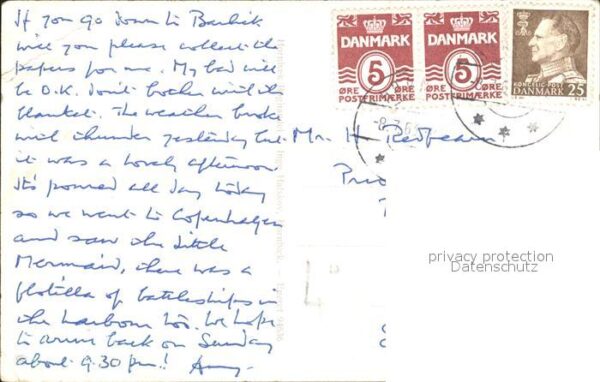 If you go down to
will you please collect the
papers for me. My bed will
be O.K. don't bother with the
blanket. The weather broke
with thunder yesterday but
it was a lovely afternoon.
It's poured all day today
so we went to Copenhagen
and saw the Little
Mermaid, there was a
flotilla of battleships in
the harbour too. We hope
to arrive back on Sunday
about 9.30 pm!
DANMARK
5
ØRE ØRE
POSTFRIMÆRKE
DANMARK
5
ØRE ØRE
POSTFRIMÆRKE
KONGELIG POST
DANMARK 25
Mr. H. Redfearn
privacy protection
Datenschutz